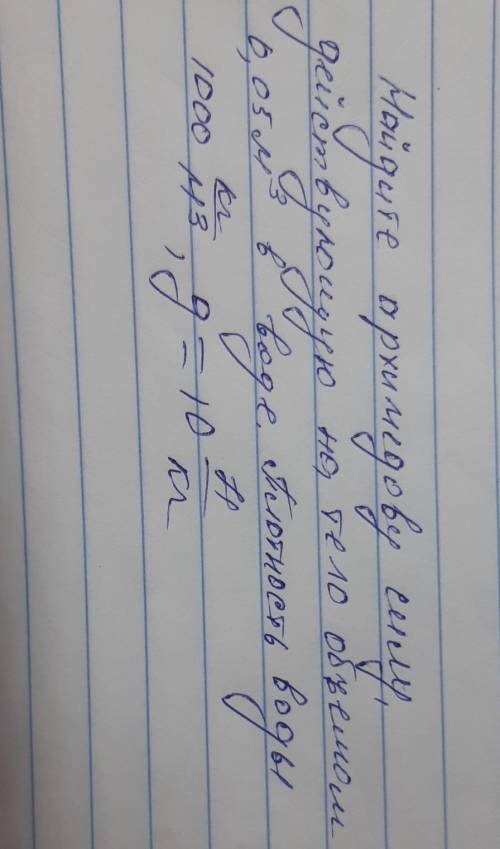 Найдите архимедову силу,
действующую на тело объемом
0,05 м³ в воде. Плотность воды
1000 кг/м3, g = 10 Н/кг